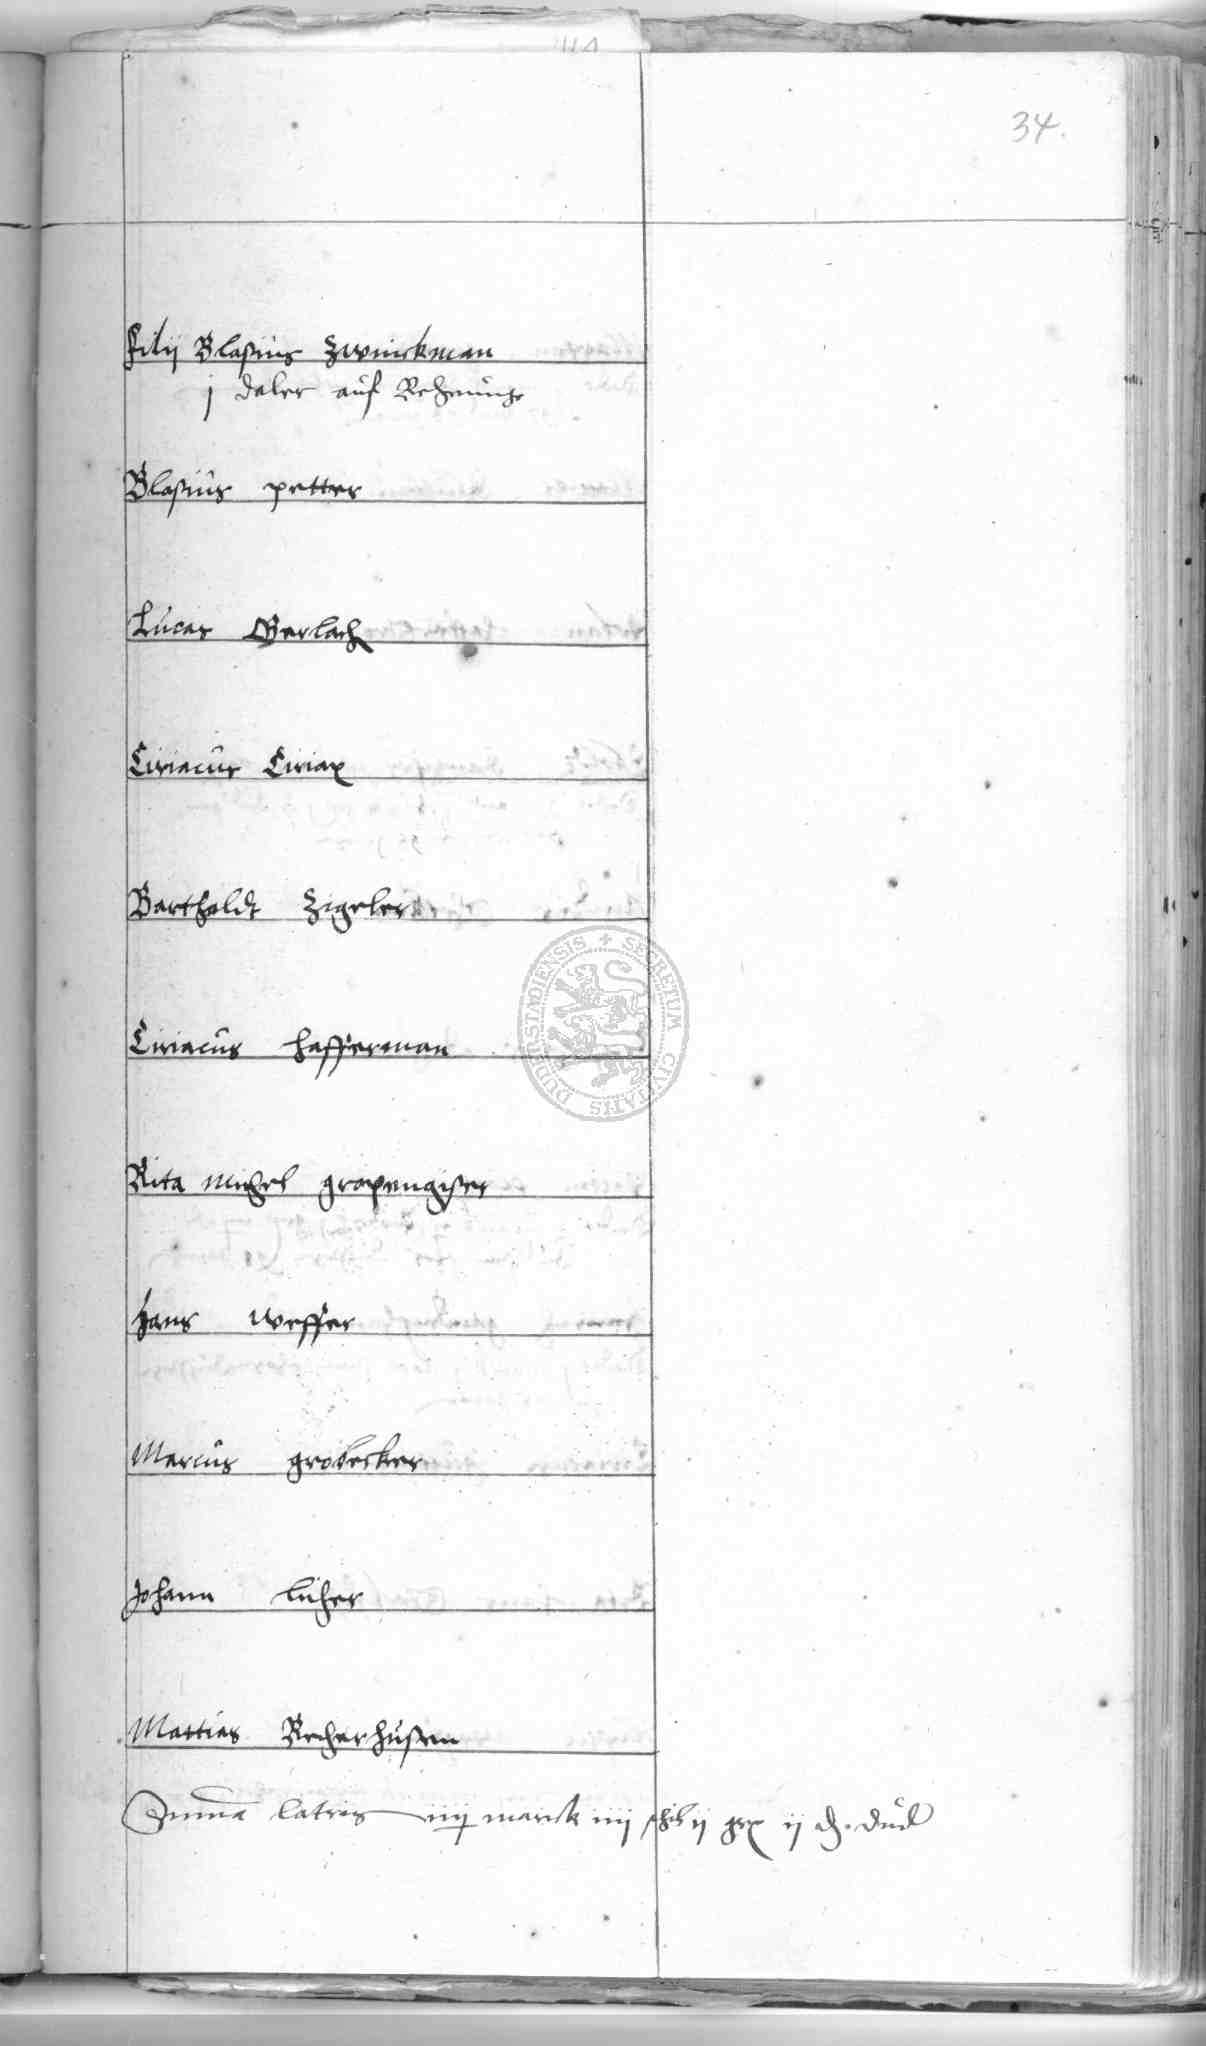 34.
Filij Blasius Zwinckman
j daler auf Rechnung
Blasius petter
Lucas Gerlach
Ciriacus Ciriax
Bartholdt Zigeler
Ciriacus Hafferman
Relicta Michel gropengisser
Hans Weffer
Marcus grobecker
Johann lücher
Mattias Recherhusen
Summa lateris iiij marck iiij schil ij
SECRETUM CIVITATIS DUDERSTADIENSIS